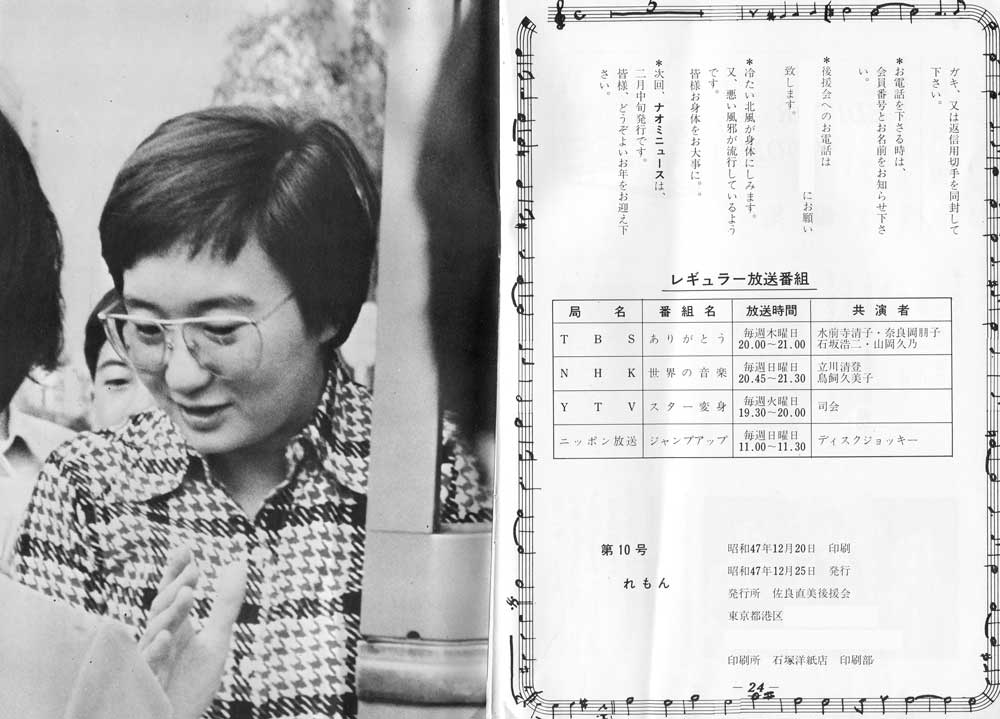 ガキ、又は返信用切手を同封して
下さい。
*お電話を下さる時は、
会員番号とお名前をお知らせ下さ
い。
*後援会へのお電話は
にお願い
致します。
*冷たい北風が身体にしみます。
又、悪い風邪が流行しているよう
です。
皆様お身体をお大事に。。
*次回、ナオミニュースは、
二月中旬発行です。
皆様、どうぞよいお年をお迎え下
さい。
レギュラー放送番組
局名 番組名 放送時間 共演者
TBS ありがとう 毎週木曜日 20.00〜21.00 水前寺清子・奈良岡朋子 石坂浩二・山岡久乃
NHK 世界の音楽 毎週日曜日 20.45〜21.30 立川清登 鳥飼久美子
YTV スター変身 毎週火曜日 19.30〜20.00 司会
ニッポン放送 ジャンプアップ 毎週日曜日 11.00〜11.30 ディスクジョッキー
第10号
れもん
昭和47年12月20日 印刷
昭和47年12月25日 発行
発行所 佐良直美後援会
東京都港区
印刷所 石塚洋紙店 印刷部
— 24 —